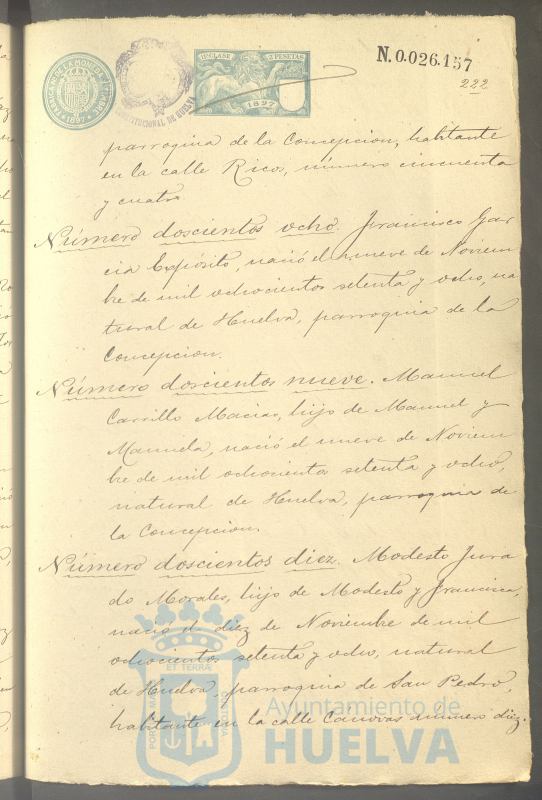 FABRICA DE LA MONEDA Y TIMBRE
1897
CONSTITUCIONAL DE HUELVA
12ª CLASE 2 PESETAS
1897
N.0.026.157
222
parroquia de la Concepcion, habitante
en la calle Ricos, número cincuenta
y cuatro
Número doscientos ocho. Francisco Gar
cia Expósito, nació el nueve de Noviem
bre de mil ochocientos setenta y ocho, na
tural de Huelva, parroquia de la
Concepcion.
Número doscientos nueve. Manuel
Carrillo Macias, hijo de Manuel y
Manuela, nació el nueve de Noviem
bre de mil ochocientos setenta y ocho,
natural de Huelva, parroquia de
la Concepcion.
Número doscientos diez. Modesto Jura
do Morales, hijo de Modesto y Francisca,
nació el diez de Noviembre de mil
ochocientos setenta y ocho, natural
de Huelva, parroquia de San Pedro,
habitante en la calle Canovas número diez.
ET TERRÆ
Ayuntamiento de
HUELVA